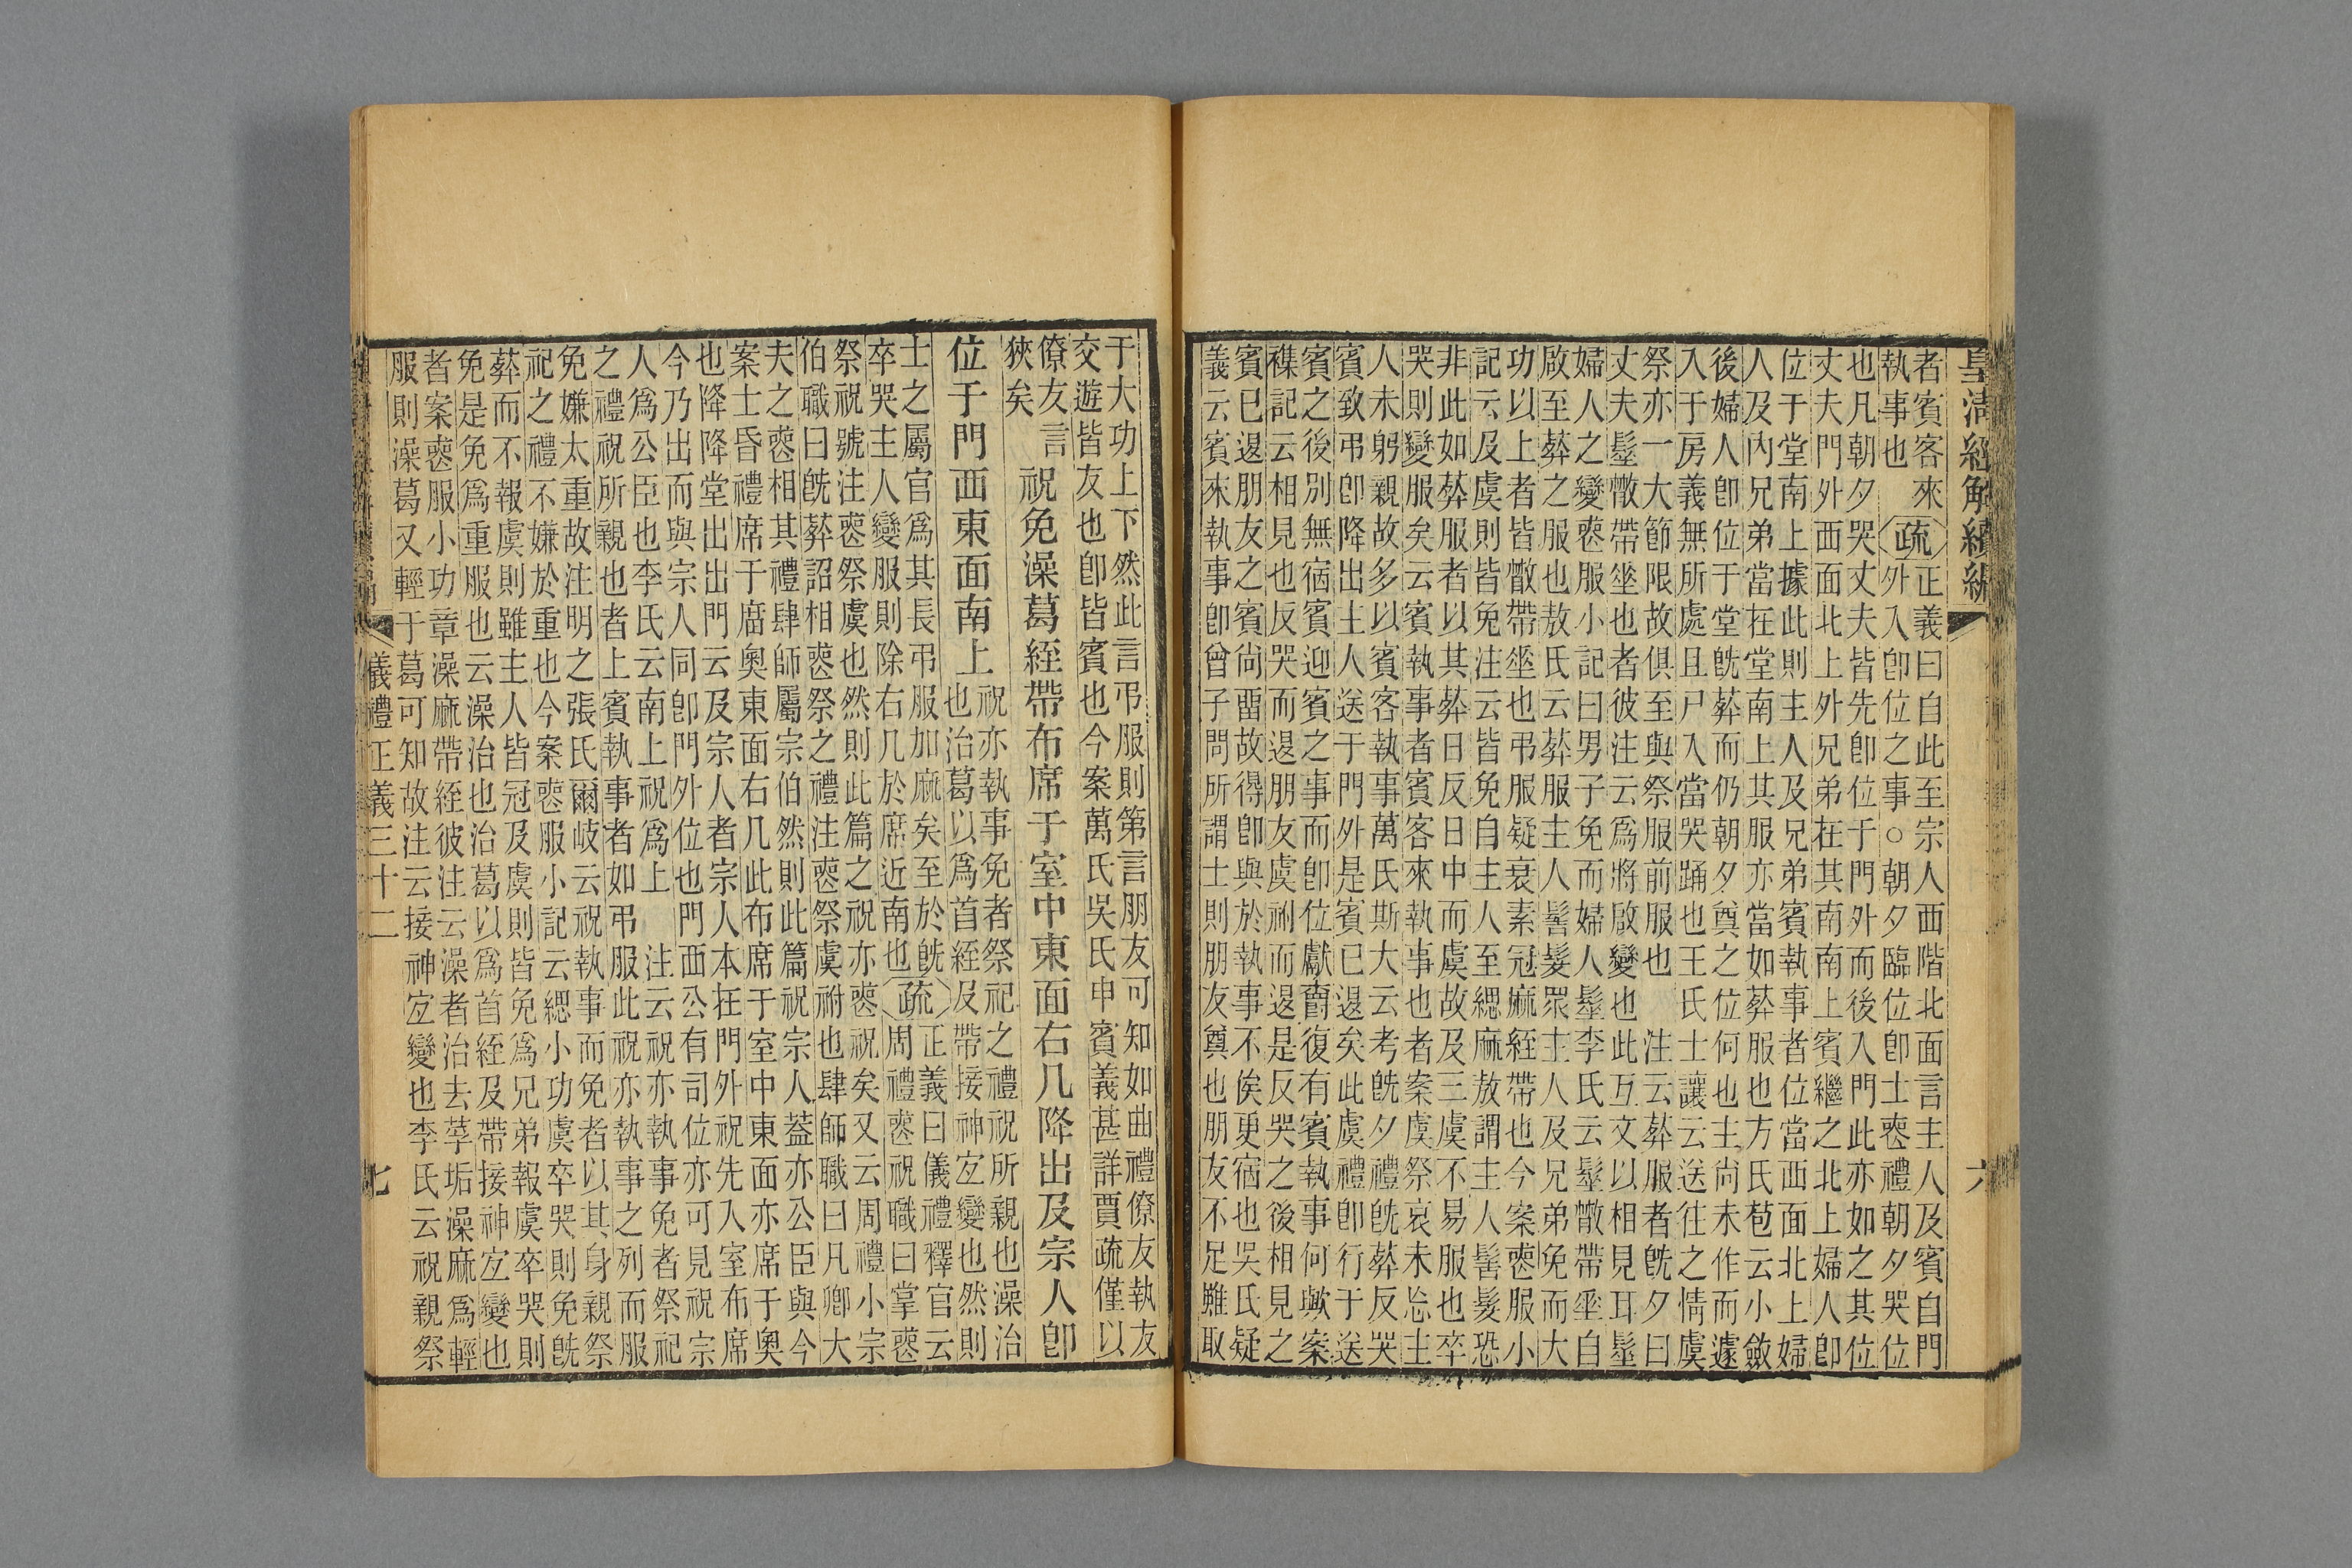 皇清經解續編
六
者賓客來
執事也
疏
正義曰自此至宗人西階北面言主人及賓自門
外入卽位之事○朝夕臨位卽士喪禮朝夕哭位
也凡朝夕哭丈夫皆先卽位于門外而後入門此亦如之其位
丈夫門外西面北上外兄弟在其南南上賓繼之北上婦人卽
位于堂南上據此則主人及兄弟賓執事者位當西面北上婦
人及內兄弟當在堂南上其服亦當如葬服也方氏苞云小斂
後婦人卽位于堂旣葬而仍朝夕奠之位何也主尚未作而遽
入于房義無所處且尸入當哭踊也王氏士讓云送往之情虞
祭亦一大節限故俱至與祭服前服也 注云葬服者旣夕曰
丈夫髽散帶垂也者彼注云爲將啟變也此互文以相見耳髽
婦人之變喪服小記曰男子免而婦人髽李氏云髽散帶垂自
啟至葬之服也敖氏云葬服主人髺髮眾主人及兄弟免而大
功以上者皆散帶垂也弔服疑衰素冠麻絰帶也今案喪服小
記云及虞則皆免注云皆免自主人至緦麻敖謂主人髺髮恐
非此如葬服者以其葬日反日中而虞故及三虞不易服也卒
哭則變服矣云賓執事者賓客來執事也者案虞祭哀未忘主
人未躬親故多以賓客執事萬氏斯大云考旣夕禮旣葬反哭
賓致弔卽降出主人送于門外是賓已退矣此虞禮卽行于送
賓之後別無宿賓迎賓之事而卽位獻酳復有賓執事何歟案
襍記云相見也反哭而退朋友虞祔而退是反哭之後相見之
賓已退朋友之賓尚畱故得卽與於執事不俟更宿也吳氏疑
義云賓來執事卽曾子問所謂士則朋友奠也朋友不足難取
于大功上下然此言弔服則第言朋友可知如曲禮僚友執友
交遊皆友也卽皆賓也今案萬氏吳氏申賓義甚詳賈疏僅以
僚友言
狹矣
祝免澡葛絰帶布席于室中東面右几降出及宗人卽
位于門西東面南上
祝亦執事免者祭祀之禮祝所親也澡治
也治葛以爲首絰及帶接神宐變也然則
士之屬官爲其長弔服加麻矣至於旣
卒哭主人變服則除右几於席近南也
疏
正義曰儀禮釋官云
周禮喪祝職曰掌喪
祭祝號注喪祭虞也然則此篇之祝亦喪祝矣又云周禮小宗
伯職曰旣葬詔相喪祭之禮注喪祭虞祔也肆師職曰凡卿大
夫之喪相其禮肆師屬宗伯然則此篇祝宗人蓋亦公臣與今
案士昏禮席于庿奧東面右几此布席于室中東面亦席于奧
也降降堂出出門云及宗人者宗人本在門外祝先入室布席
今乃出而與宗人同卽門外位也門西公有司位亦可見祝宗
人爲公臣也李氏云南上祝爲上 注云祝亦執事免者祭祀
之禮祝所親也者上賓執事者如弔服此祝亦執事之列而服
免嫌太重故注明之張氏爾岐云祝執事而免者以其身親祭
祀之禮不嫌於重也今案喪服小記云緦小功虞卒哭則免旣
葬而不報虞則雖主人皆冠及虞則皆免爲兄弟報虞卒哭則
免是免爲重服也云澡治也治葛以爲首絰及帶接神宐變也
者案喪服小功章澡麻帶絰彼注云澡者治去莩垢澡麻爲輕
服則澡葛又輕于葛可知故注云接神宐變也李氏云祝親祭
儀禮正義三十二
七